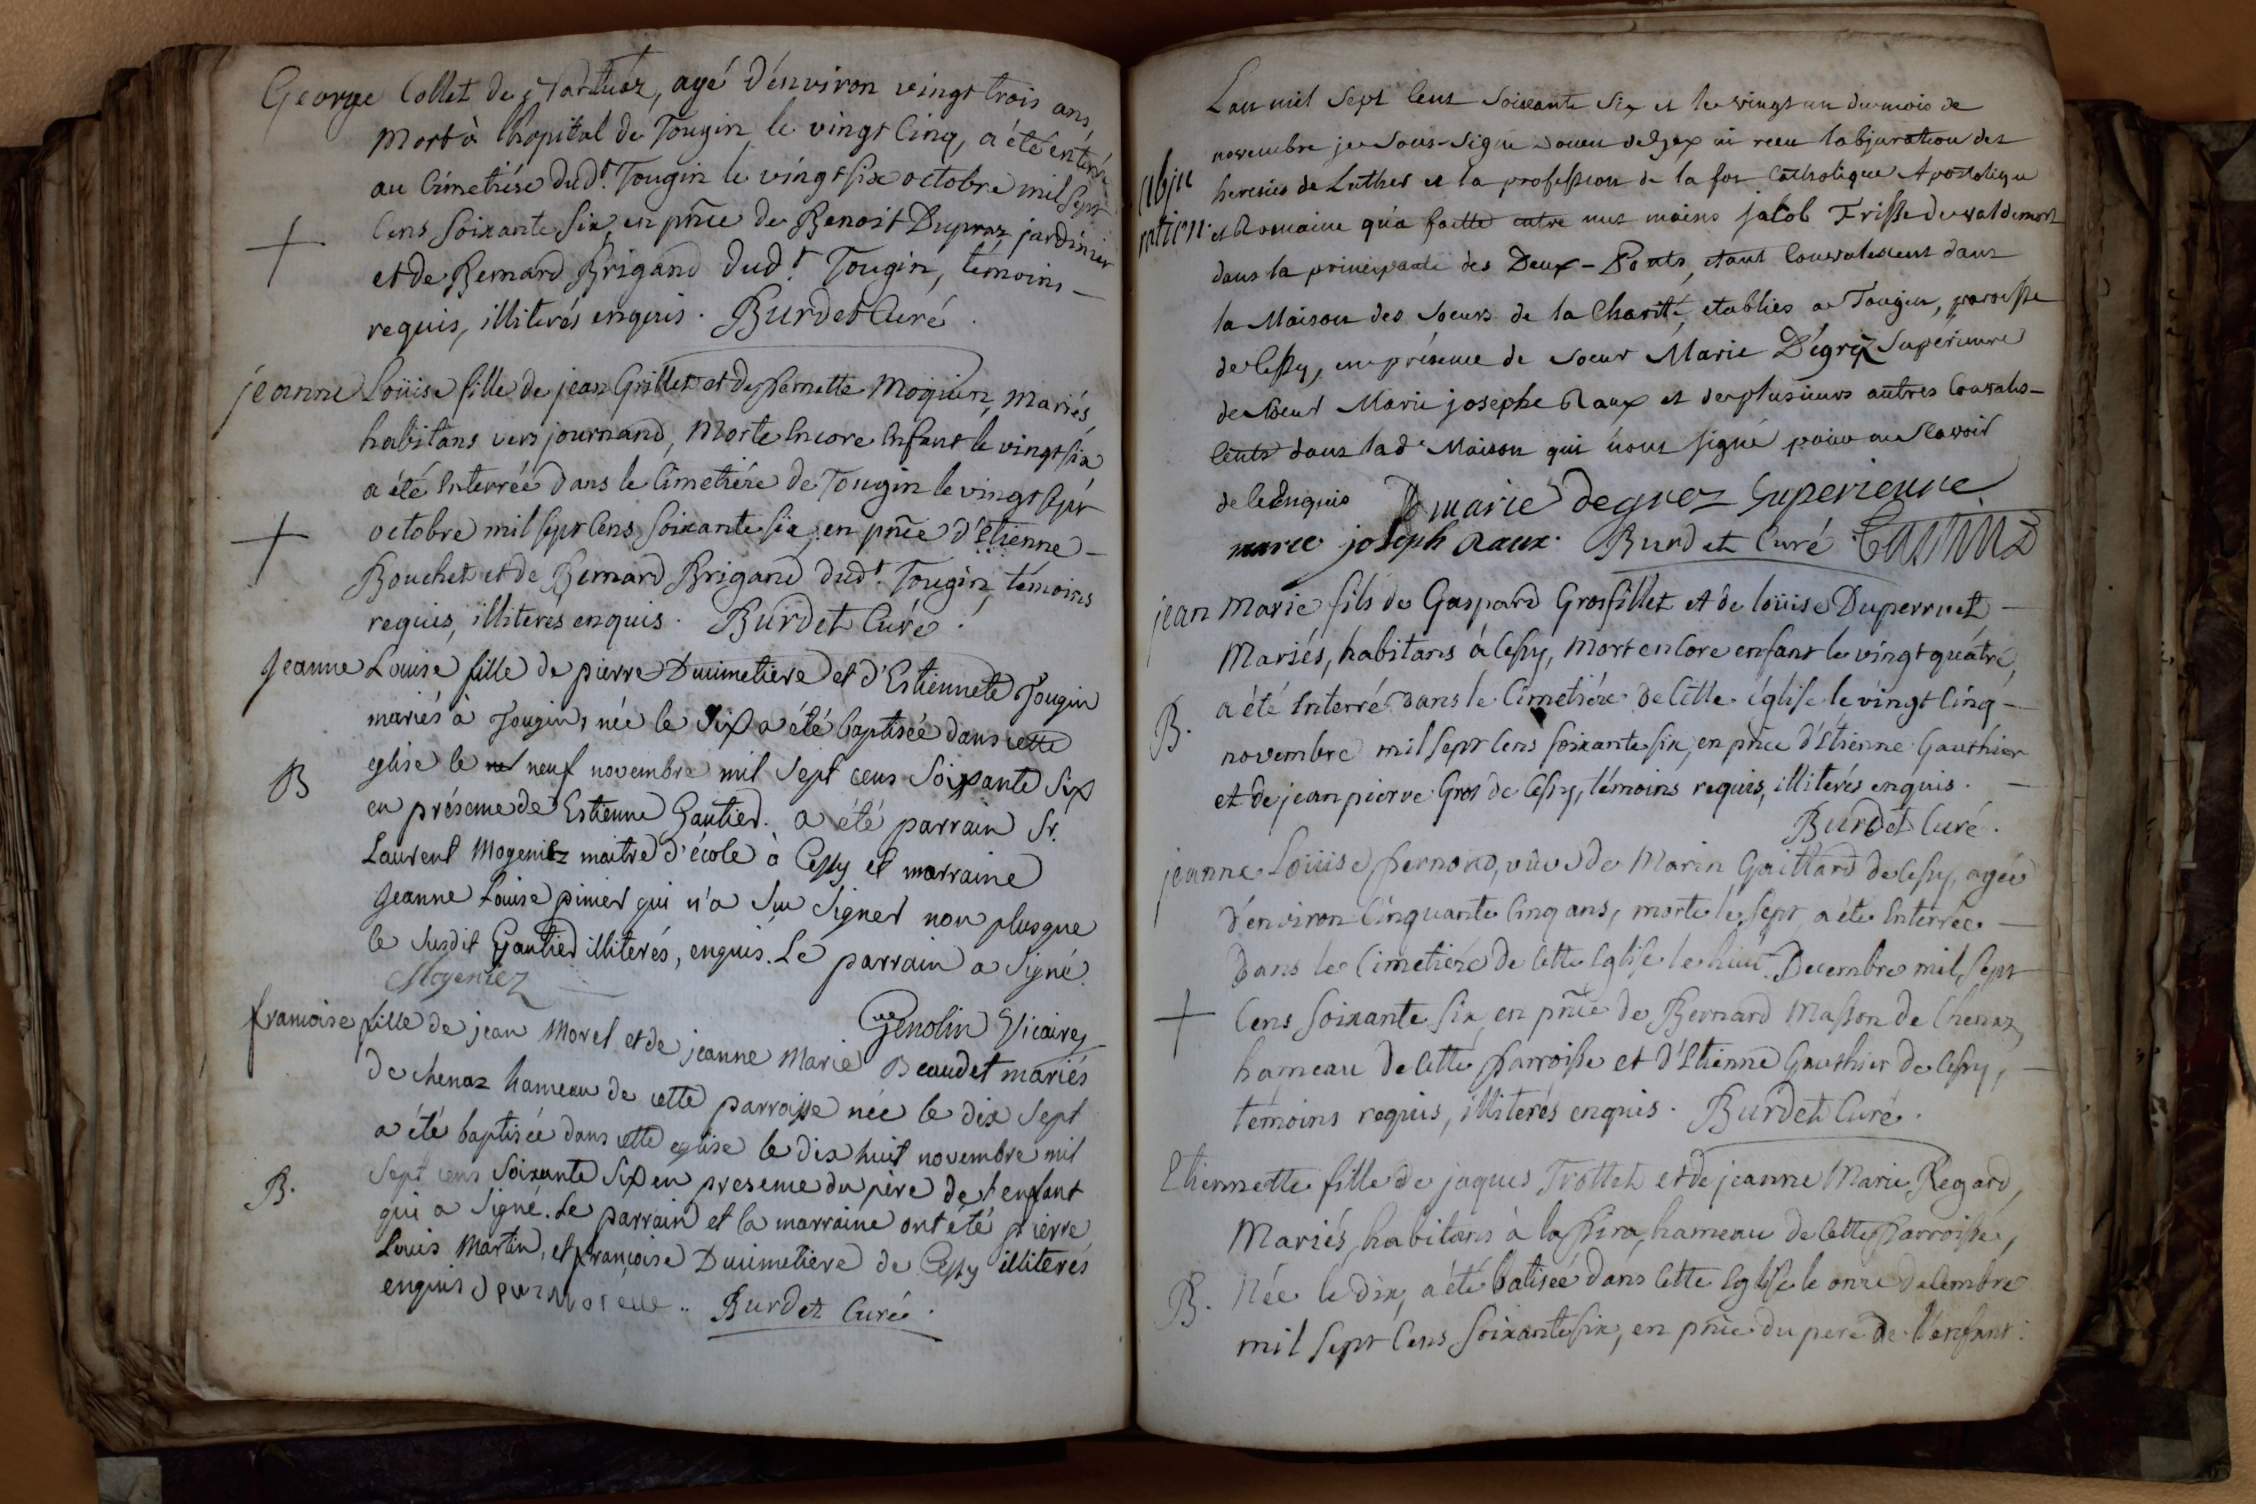 George Collet de, agé d'environ vingt trois ans
mort à l'hopital de Tougin le vingt cinq, a été enterré
au cimetiére dud.t Tougin le vingt six octobre mil sept
cens soixante six, en pñce de Benoit Dupraz jardinier
et de Bernard Brigand dud.t Tougin, témoins
requis, illiterés enquis. Burdet Curé.
jeanne Loüise fille de jean Grillet et de pernette Moquin, mariés,
habitans vers journand, morte encore enfant le vingt six
a été enterrée dans le cimetiére de Tougin le vingt sept
octobre mil sept cens soixante six, en pñce d'Etienne
Bouchet et de Bernard Brigand dud.t Tougin, témoins
requis, illiterés enquis. Burdet Curé.
Jeanne Louise fille de pierre Ducimetiere et d'Estiennete Tougin
mariés à Tougin, née le six a été baptisée dans cette
B
eglise le neuf novembre mil sept cens soixante six
en présence de Estienne Gautier. a été parrain Sr.
Laurent Mogeniez maitre d'école à Cessy et marraine
Jeanne Louise pinier qui n'a sçu signer non plus que
le susdit Gautier illiterés, enquis. Le parrain a signé.
Mogeniez
Genolin Vicaire
francoise fille de jean Morel et de jeanne Marie Beaudet mariés
de chenaz hameau de cette parroisse née le dix sept
a été baptisée dans cette eglise le dix huit novembre mil
B.
sept cens soixante six en presence du père de l'enfant
qui a signé. Le parrain et la marraine ont été pierre
Louis Martin, et françoise Ducimetiere de Cessy illiterés
enquis Burdet Curé.
L'an mil sept cent soixante six et le vingt un du mois de
novembre je sous-signé doien de Gex ai recu l'abjuration des
abju
ration
heresies de Luther et la profession de la foi catholique Apostolique
et Romaine qu'a faitte entre mes mains jacob Frisse de waldmort
dans la principauté des Deux-Ponts, etant convalescent dans
la Maison des soeurs de la Charité, etablies a Tougin, paroisse
de Cessy, en présence de soeur Marie Dégrez supérieure
de soeur Marie josephe Raux et de plusieurs autres convales-
cents dans lad.e Maison qui n'ont signé pour ne scavoir
de ce enquis marie degrez superieure
marie joseph Raux. Burdet Curé
jean Marie fils de Gaspard Grosfillet et de loüise Duperruet
mariés, habitans à Cessy, mort encore enfant le vingt quatre,
a été enterré dans le cimetiére de cette église le vingt cinq
B.
novembre mil sept cens soixante six, en pñce d'Etienne Gauthier
et de jean pierre Gros de Cessy, témoins requis, illiterés enquis.
Burdet Curé.
jeanne Loüise pernord, vüve de Marin Gaillard de Cessy, agée
d'environ cinquante cinq ans, morte le sept, a été enterrée
dans le cimetiére de cette Eglise le huit Decembre mil sept
cens soixante six en pñce de Bernard Masson de Chenaz,
hameau de cette parroisse et d'Etienne Gauthier de Cessy,
témoins requis, illiterés enquis. Burdet Curé.
Etiennette fille de jaques Trottet et de jeanne Marie Regard,
mariés, habitans à la pira, hameau de cette parroisse,
B.
née le dix, a été batisée dans cette Eglise le onze decembre
mil sept cens soixante six, en pñce du pere de l'enfant.